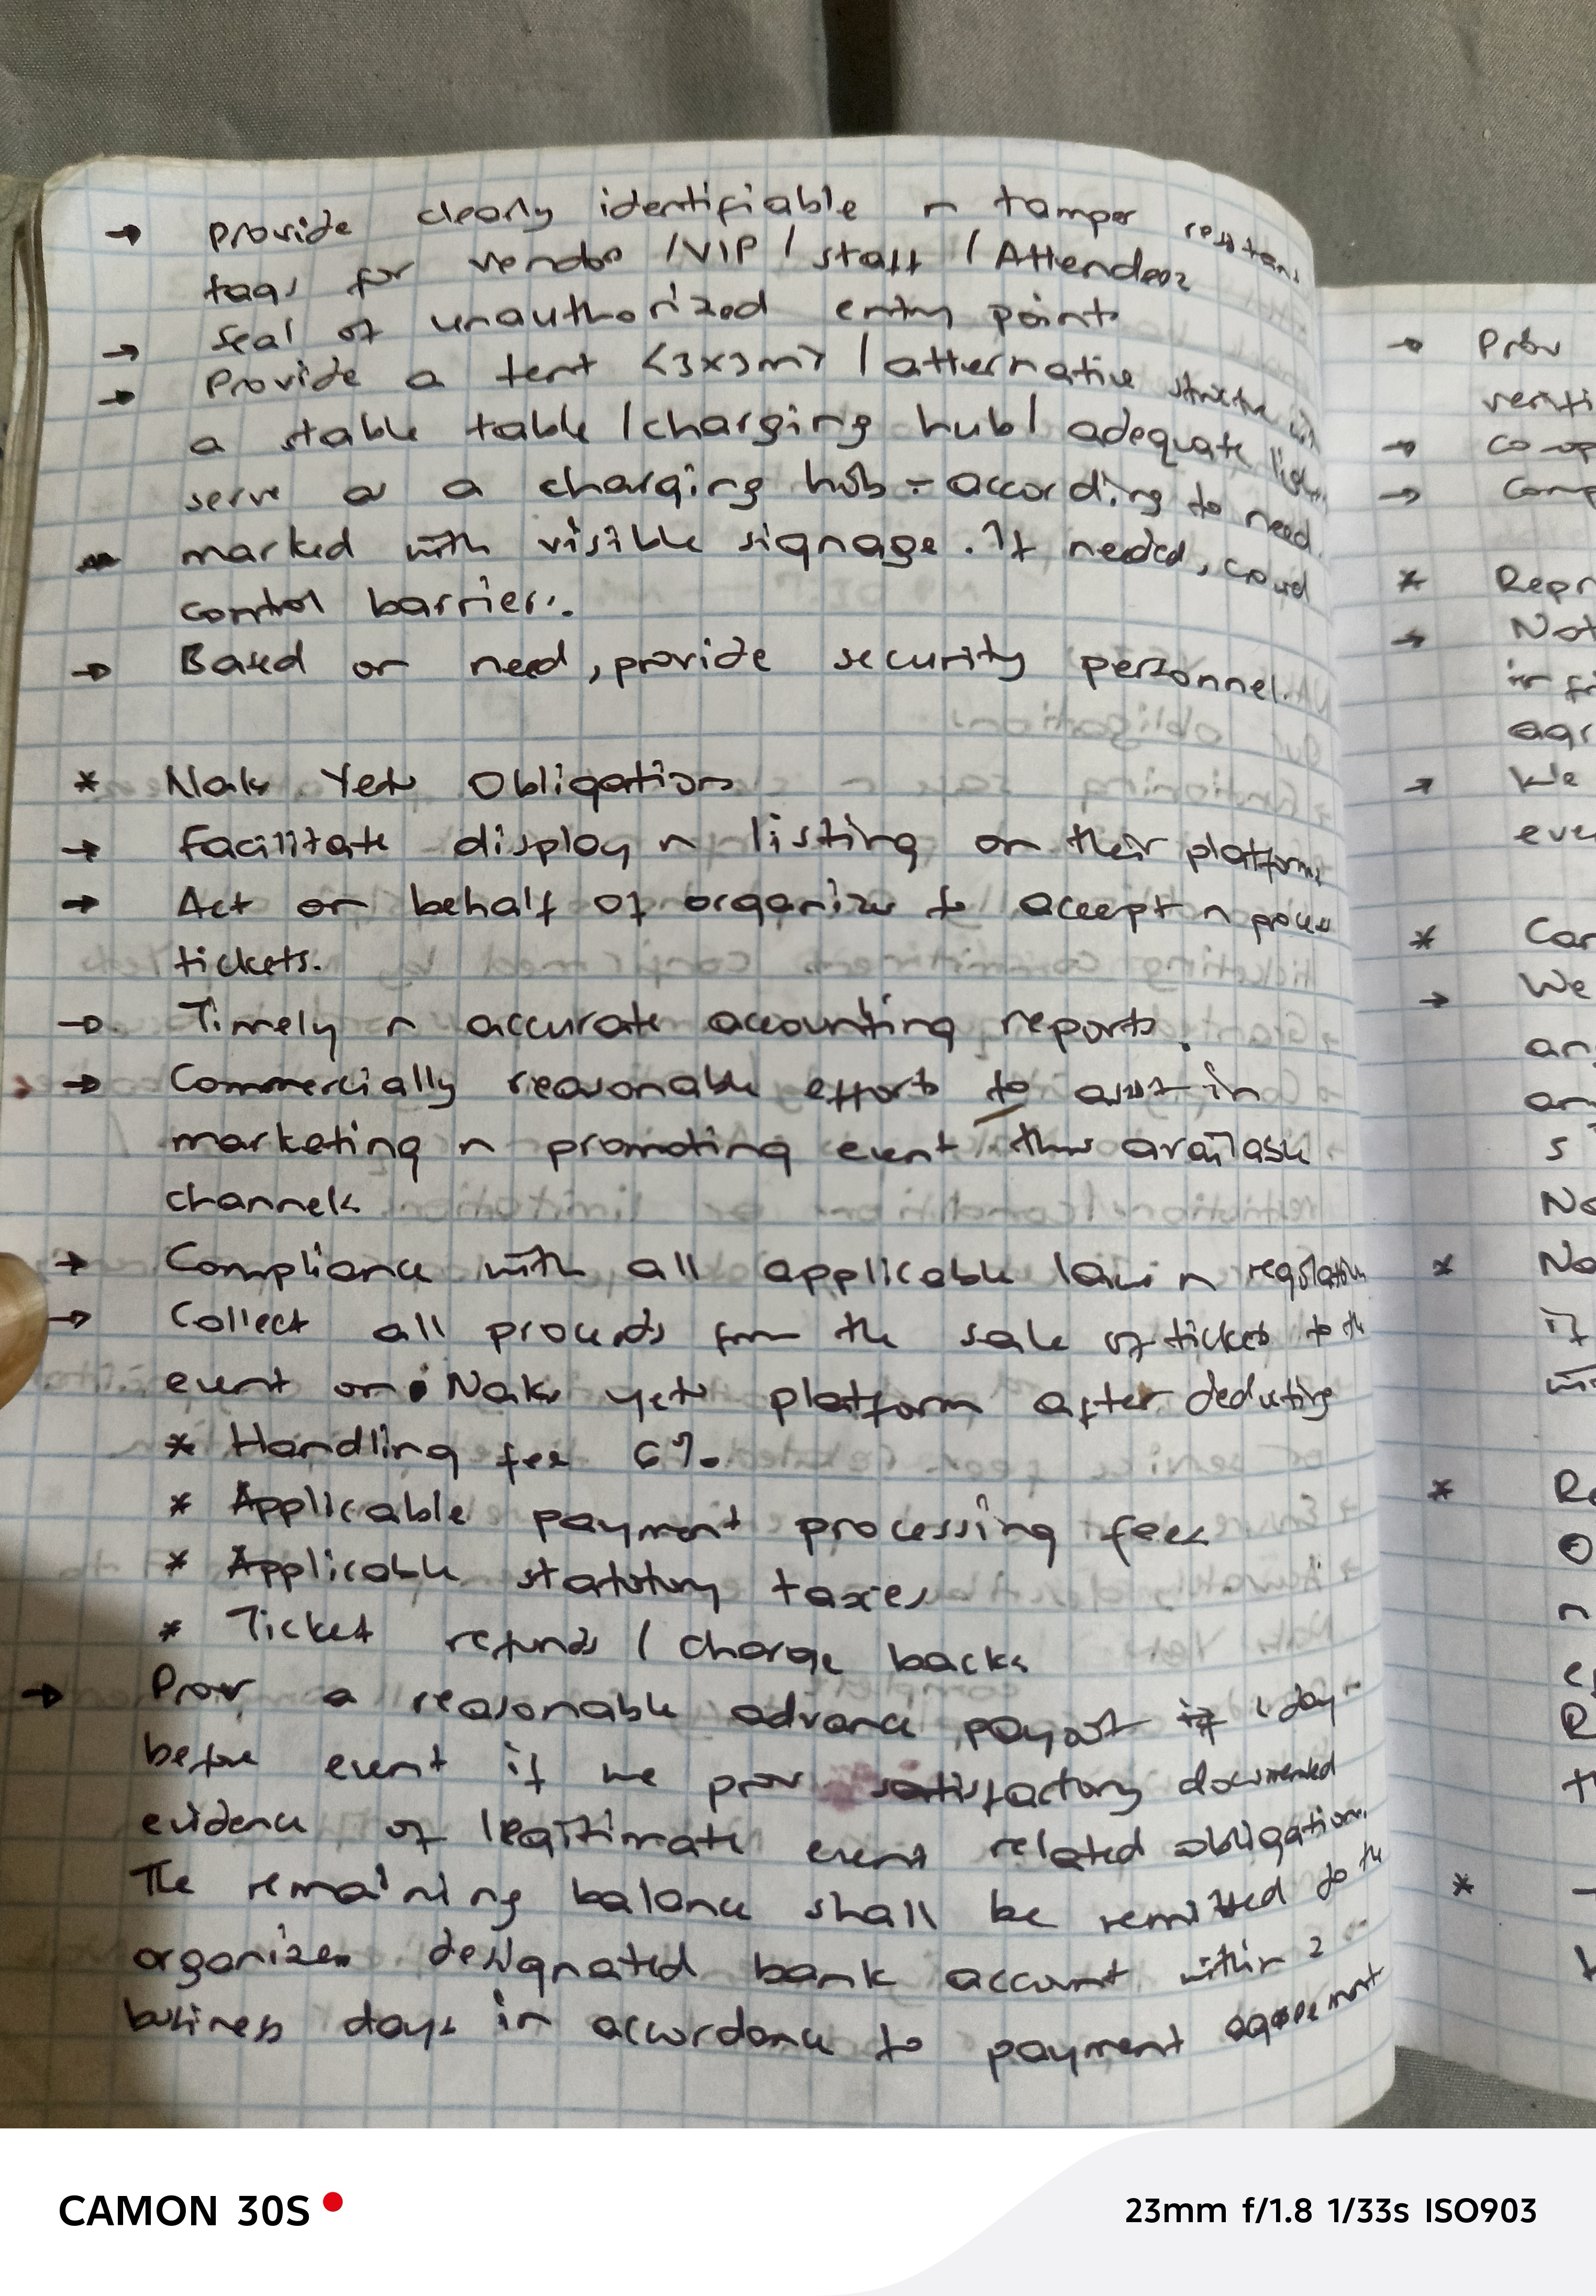 → Provide clearly identifiable n tamper resistant
tags for vendos /VIP / staff / Attendees
→ Seal of unauthorized entry points
→ Provide a tent <3x3m> / alternative structure
a stable table /charging hub/ adequate
serve as a charging hub - according to need.
marked with visible signage. If needed, crowd
control barriers.
→ Based on need, provide security personnel.
* Naks Yetu Obligations
→ Facilitate display n listing on their platforms
→ Act on behalf of organizer to accept n process
tickets.
→ Timely n accurate accounting reports.
→ Commercially reasonable efforts to assist in
marketing n promoting event thru available
channels
→ Compliance with all applicable laws n regulations
→ Collect all proceeds from the sale of tickets to the
event on Naks yetu platform after deducting
* Handling fee 6%
* Applicable payment processing fees
* Applicable statutory taxes
* Ticket refunds / charge backs
→ Prov a reasonable advance payout if 1 day
before event if we prov satisfactory documented
evidence of legitimate event related obligations.
The remaining balance shall be remitted to the
organizers designated bank account within 2
business days in accordance to payment agreement
→ Prov
→ Co-op
→ Comp
* Repr
→ Not
agr
→ We
eve
* Car
→ We
an
an
s
No
* No
if
* Re
O
n
R
*
CAMON 30S
23mm f/1.8 1/33s ISO903